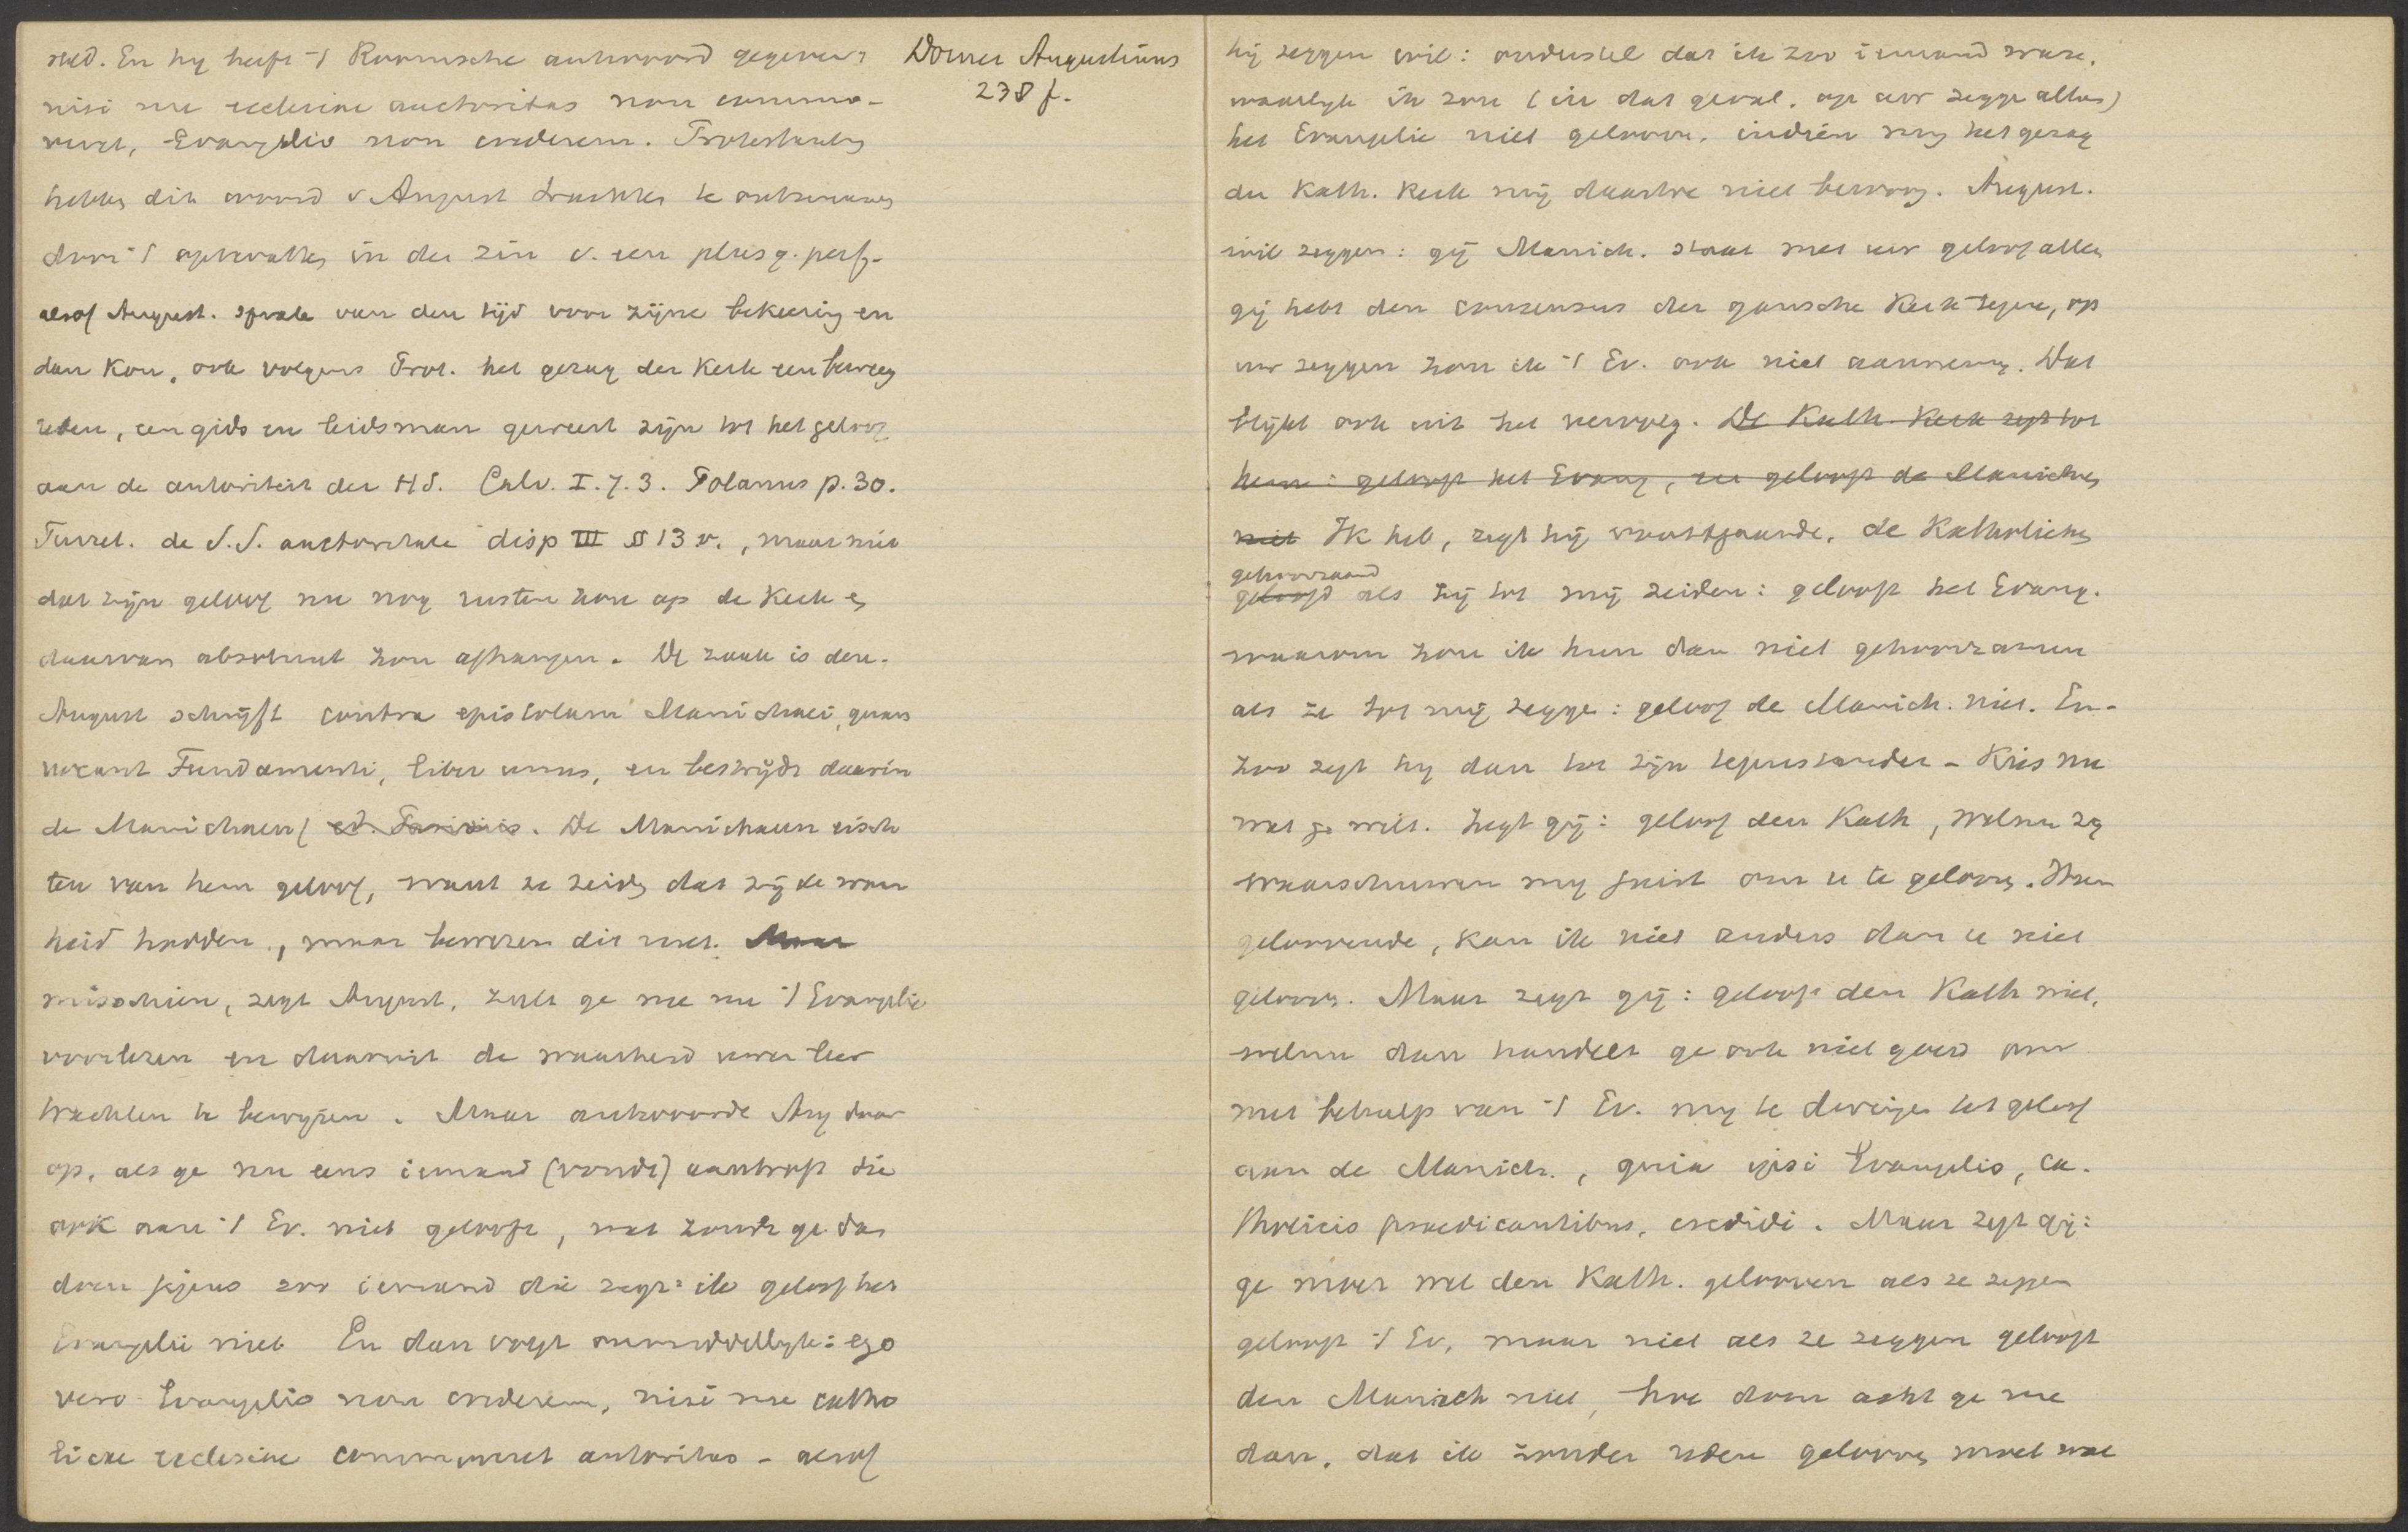 reed. En hy heeft 't Roomsche antwoord gegeven:
nisi me ecclesiae auctoritas non commo-
veret, Evangelio non crederem. Protestanten
hebben dit woord v August trachten te ontzenuwen
door 't optevatten in den zin v. een plusq. perf.
alsof August. sprake van den tijd voor zijne bekeering en
dan kon, ook volgens Prot. het gezag der Kerk een beweeg
reden, een gids en leidsman geweest zijn tot het geloof
aan de autoriteit der H S. Calv. I. 7. 3. Polanus p. 30.
Turret. de S. S. auctoritate disp III § 13 v., maar niet
dat zijn geloof nu nog rusten zou op de Kerk en
daarvan absoluut zou afhangen. De zaak is deze.
August schrijft contra epistolam Manichaei, quam
vocant Fundamenti, liber unus, en bestrijdt daarin
de Manichaen. De Manichaeen eisch
ten van hem geloof, want ze zeiden dat zij de waar
heid hadden, maar bewezen dit niet. Maar
misschien, zegt August, zult ge me nu 't Evangelie
voorlezen en daaruit de waarheid uwer leer
trachten te bewijzen. Maar antwoordt Aug daar
op, als ge nu eens iemand (vondt) aantroft die
ook aan 't Ev. niet gelooft, wat zoudt ge dan
doen jegens zoo iemand die zegt: ik geloof het
Evangelie niet En dan volgt onmiddellijk: ego
vero Evangelio non crederem, nisi me catho
licae ecclesiae commoveret autoritas - alsof
Dorner Augustinus
238 f.
hij zeggen wil: onderstel dat ik zoo iemand ware,
waarlijk ik zou (in dat geval, op uw zegge alleen)
het Evangelie niet gelooven, indien my het gezag
der Kath. Kerk mij daartoe niet bewoog. August.
wil zeggen: gij Manich. staat met uw geloof alleen
gij hebt den consensus der gansche Kerk tegen, op
uw zeggen zou ik 't Ev. ook niet aannemen. Dat
blijkt ook uit het vervolg. De Kath. Kerk zegt tot
hem: gelooft het Evang, en gelooft de Manichen
niet Ik heb, zegt hij voortgaande, de Katholieken
gehoorzaamd
geloofd als zij tot mij zeiden: gelooft het Evang.
waarom zou ik hun dan niet gehoorzamen
als ze tot mij zegge: geloof de Manich. niet. En-
zoo zegt hy dan tot zijn tegenstander - Kies nu
wat ge wilt. Zegt gij: geloof den Kath, welnu zy
waarschuwen my juist om u te gelooven. Hun
geloovende, kan ik niet anders dan u niet
gelooven. Maar zegt gij: gelooft den Kath niet,
welnu dan handelt ge ook niet goed om
met behulp van 't Ev. my te dwingen tot geloof
aan de Manich., quia ipsi Evangelio, ca-
tholicis praedicantibus, credidi. Maar zegt gij:
ge moet wel den Kath. gelooven als ze zeggen
gelooft 't Ev, maar niet als ze zeggen gelooft
den Manich niet, hoe dom acht ge me
dan, dat ik zonder reden gelooven moet wat